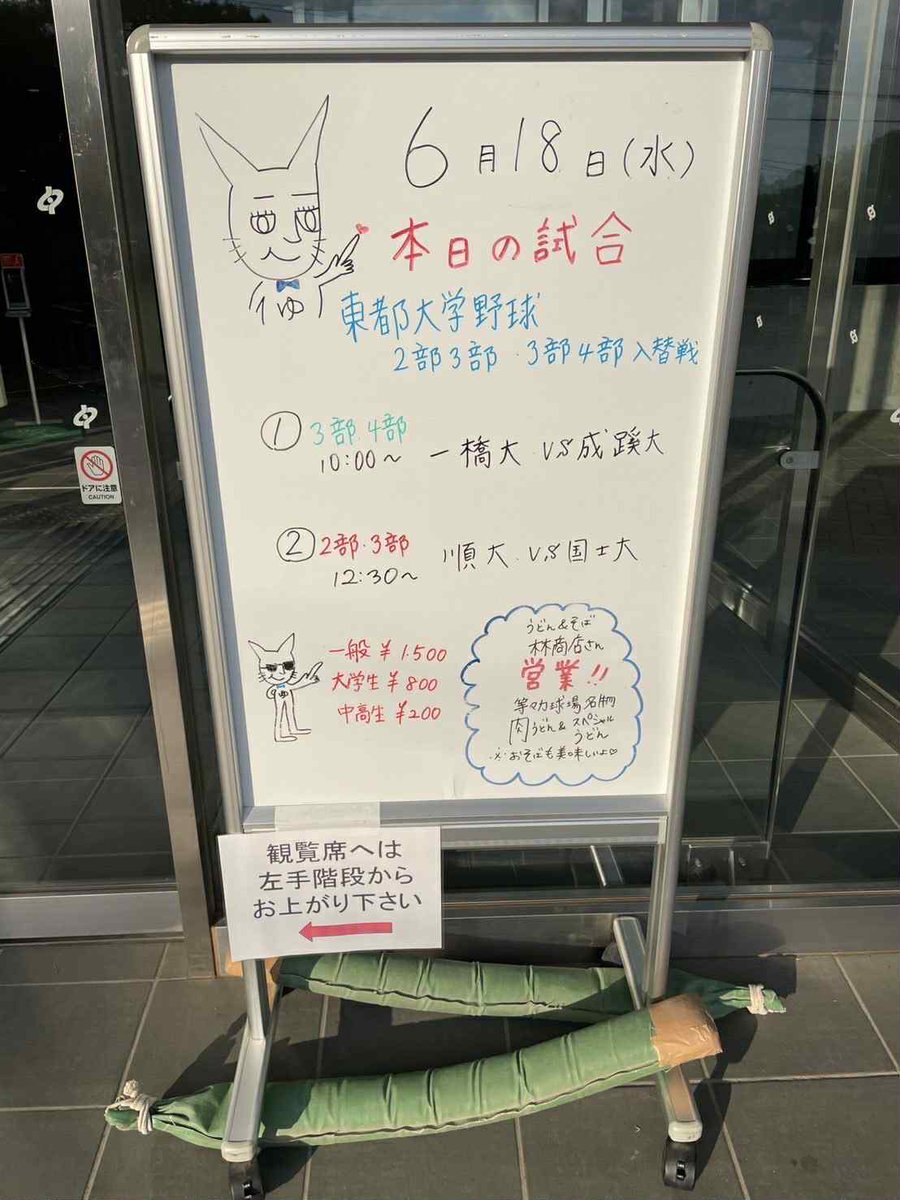 6月18日(水)
本日の試合
東都大学野球
2部3部・3部4部入替戦
① 3部.4部
10:00~ 一橋大 VS 成蹊大
② 2部.3部
12:30~ 順大 VS 国士大
一般 ¥1.500
大学生 ¥800
中高生 ¥200
うどん&そば
林商店さん
営業!!
等々力球場名物
肉うどん&スペシャル
うどん
※おそばも美味しいよ♡
観覧席へは
左手階段から
お上がり下さい
ドアに注意
CAUTION